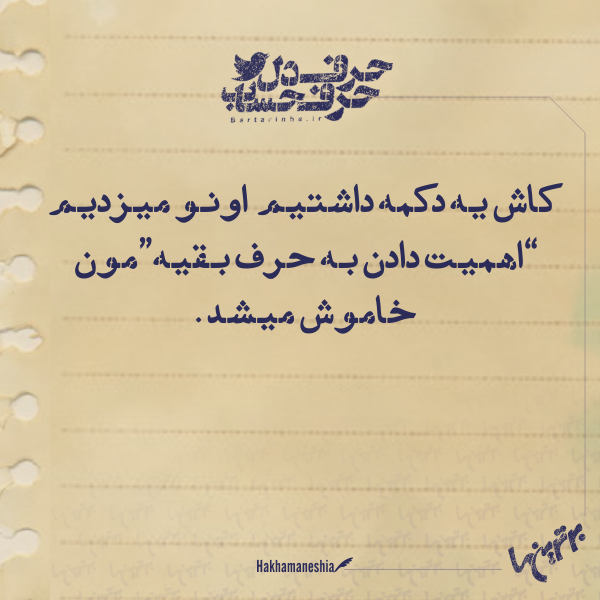 حرف دل
حرف حساب
Bartarinha.ir
کاش یه دکمه داشتیم اونو میزدیم
“اهمیت دادن به حرف بقیه”مون
خاموش میشد.
Hakhamaneshia
برترین‌ها